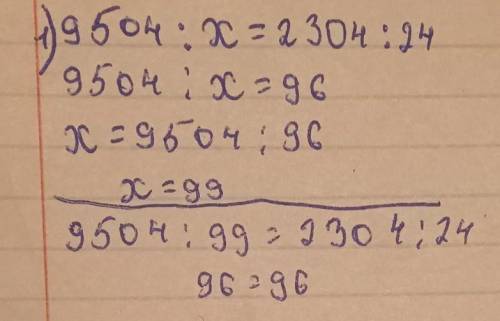 1) 9504 : x = 2304 : 24
9504 : x = 96
x = 9504 : 96
x = 99
9504 : 99 = 2304 : 24
96 = 96